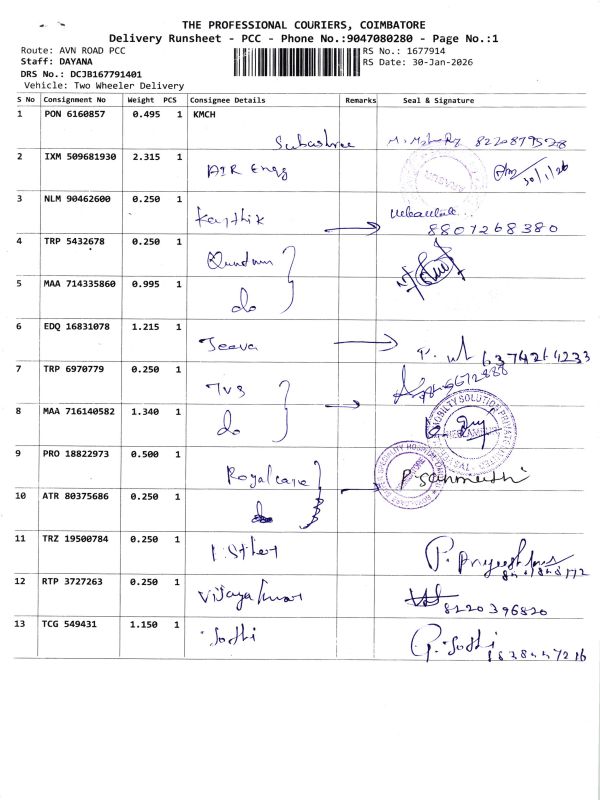 THE PROFESSIONAL COURIERS, COIMBATORE
Delivery Runsheet - PCC - Phone No.:9047080280 - Page No.:1
Route: AVN ROAD PCC
RS No.: 1677914
Staff: DAYANA
RS Date: 30-Jan-2026
DRS No.: DCJB167791401
Vehicle: Two Wheeler Delivery
S No Consignment No Weight PCS Consignee Details Remarks Seal & Signature
1 PON 6160857 0.495 1 KMCH
Subashree 8220879528
2 IXM 509681930 2.315 1 AIR Engg 30/1/26
3 NLM 90462600 0.250 1 Karthik 8807268380
4 TRP 5432678 0.250 1
5 MAA 714335860 0.995 1 do
6 EDQ 16831078 1.215 1 Jeeva 6374264233
7 TRP 6970779 0.250 1 TVS
8 MAA 716140582 1.340 1 do
MOBILITY SOLUTION PRIVATE
9 PRO 18822973 0.500 1 Royalcare
10 ATR 80375686 0.250 1 do
11 TRZ 19500784 0.250 1
12 RTP 3727263 0.250 1 Vijayakumar 8220396820
13 TCG 549431 1.150 1 Sothi G. Sothi